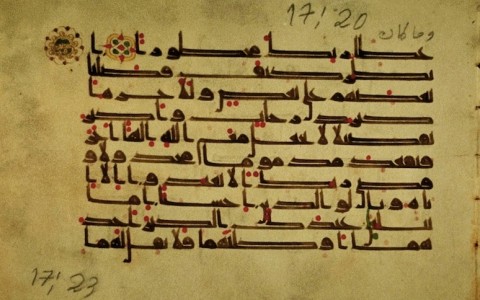 17; 20
وما كان
عطا ربك محظورا ا
نظر كيف فضلنا
بعضهم على بعض وللاخرة ا
كبر درجت واكبر
تفضيلا لا تجعل مع الله الها اخر
فتقعد مذموما مخذولا و
قضى ربك الا تعبدوا الا ا
ياه وبالولدين احسنا اما
يبلغن عندك الكبر احد
هما او كلهما فلا تقل لهما
17; 23